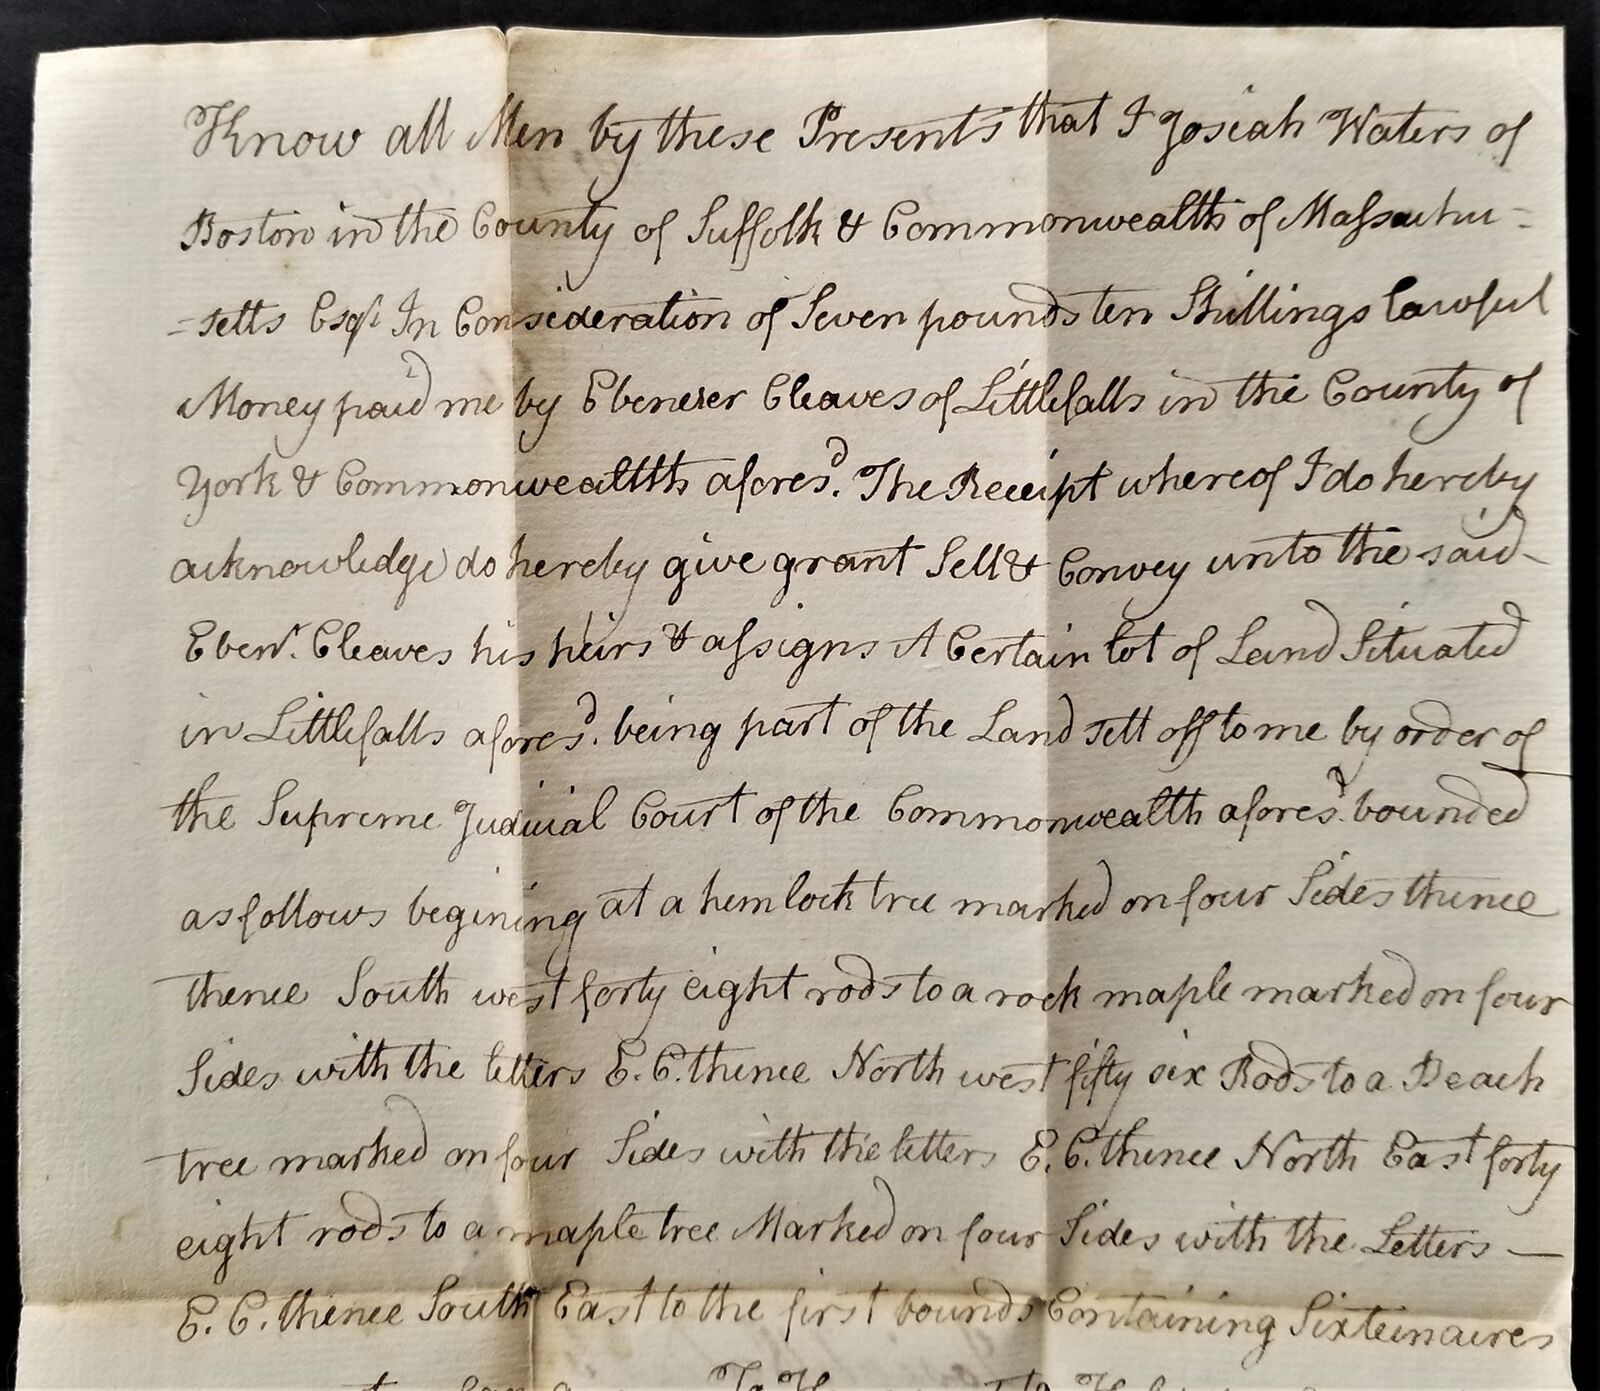 Know all Men by these Presents that I Josiah Waters of
Boston in the County of Suffolk & Commonwealth of Massachu=
=setts Esqr. In Consideration of Seven pounds ten Shillings lawful
Money paid me by Ebenezer Cleaves of Littlefalls in the County of
York & Commonwealth afores.d The Receipt whereof I do hereby
acknowledge do hereby give grant Sell & Convey unto the said
Ebenr. Cleaves his heirs & assigns A Certain lot of Land Situated
in Littlefalls afores.d being part of the Land sett off to me by order of
the Supreme Judicial Court of the Commonwealth afores.d bounded
as follows begining at a hemlock tree marked on four Sides thence
thence South west forty eight rods to a rock maple marked on four
Sides with the letters E. C. thence North west fifty six Rods to a Beach
tree marked on four Sides with the letters E. C. thence North East forty
eight rods to a maple tree Marked on four Sides with the Letters —
E. C. thence South East to the first bounds Containing Sixteen acres